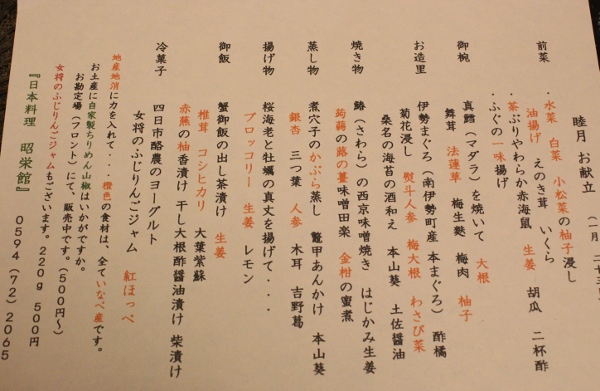 睦月 お献立
(一月 二十三
前菜
・水菜 白菜 小松菜の柚子浸し
油揚げ えのき茸 いくら
・茶ぶりやわらか赤海鼠 生姜 胡瓜 二杯酢
・ふぐの一味揚げ
御椀
真鱈(マダラ)を焼いて 大根
舞茸 法蓮草 梅生麩 梅肉 柚子
お造里
伊勢まぐろ(南伊勢町産 本まぐろ) 酢橘
菊花浸し 熨斗人参 梅大根 わさび菜
桑名の海苔の酒和え 本山葵 土佐醤油
焼き物
鰆(さわら)の西京味噌焼き はじかみ生姜
蒟蒻の蕗の薹味噌田楽 金柑の蜜煮
蒸し物
煮穴子のかぶら蒸し 鼈甲あんかけ 本山葵
銀杏 三つ葉 人参 木耳 吉野葛
揚げ物
桜海老と牡蠣の真丈を揚げて・・・
ブロッコリー 生姜 レモン
御飯
蟹御飯の出し茶漬け 生姜
椎茸 コシヒカリ 大葉紫蘇
赤蕪の柚香漬け 干し大根酢醤油漬け 柴漬け
冷菓子
四日市酪農のヨーグルト
女将のふじりんごジャム 紅ほっぺ
地産地消に力を入れて・・・橙色の食材は、全ていなべ産です。
お土産に自家製ちりめん山椒はいかがですか。
お勘定場(フロント)にて、販売中です。(500円~)
女将のふじりんごジャムもございます。220g 500円
『日本料理 昭栄館』 0594(72)2065